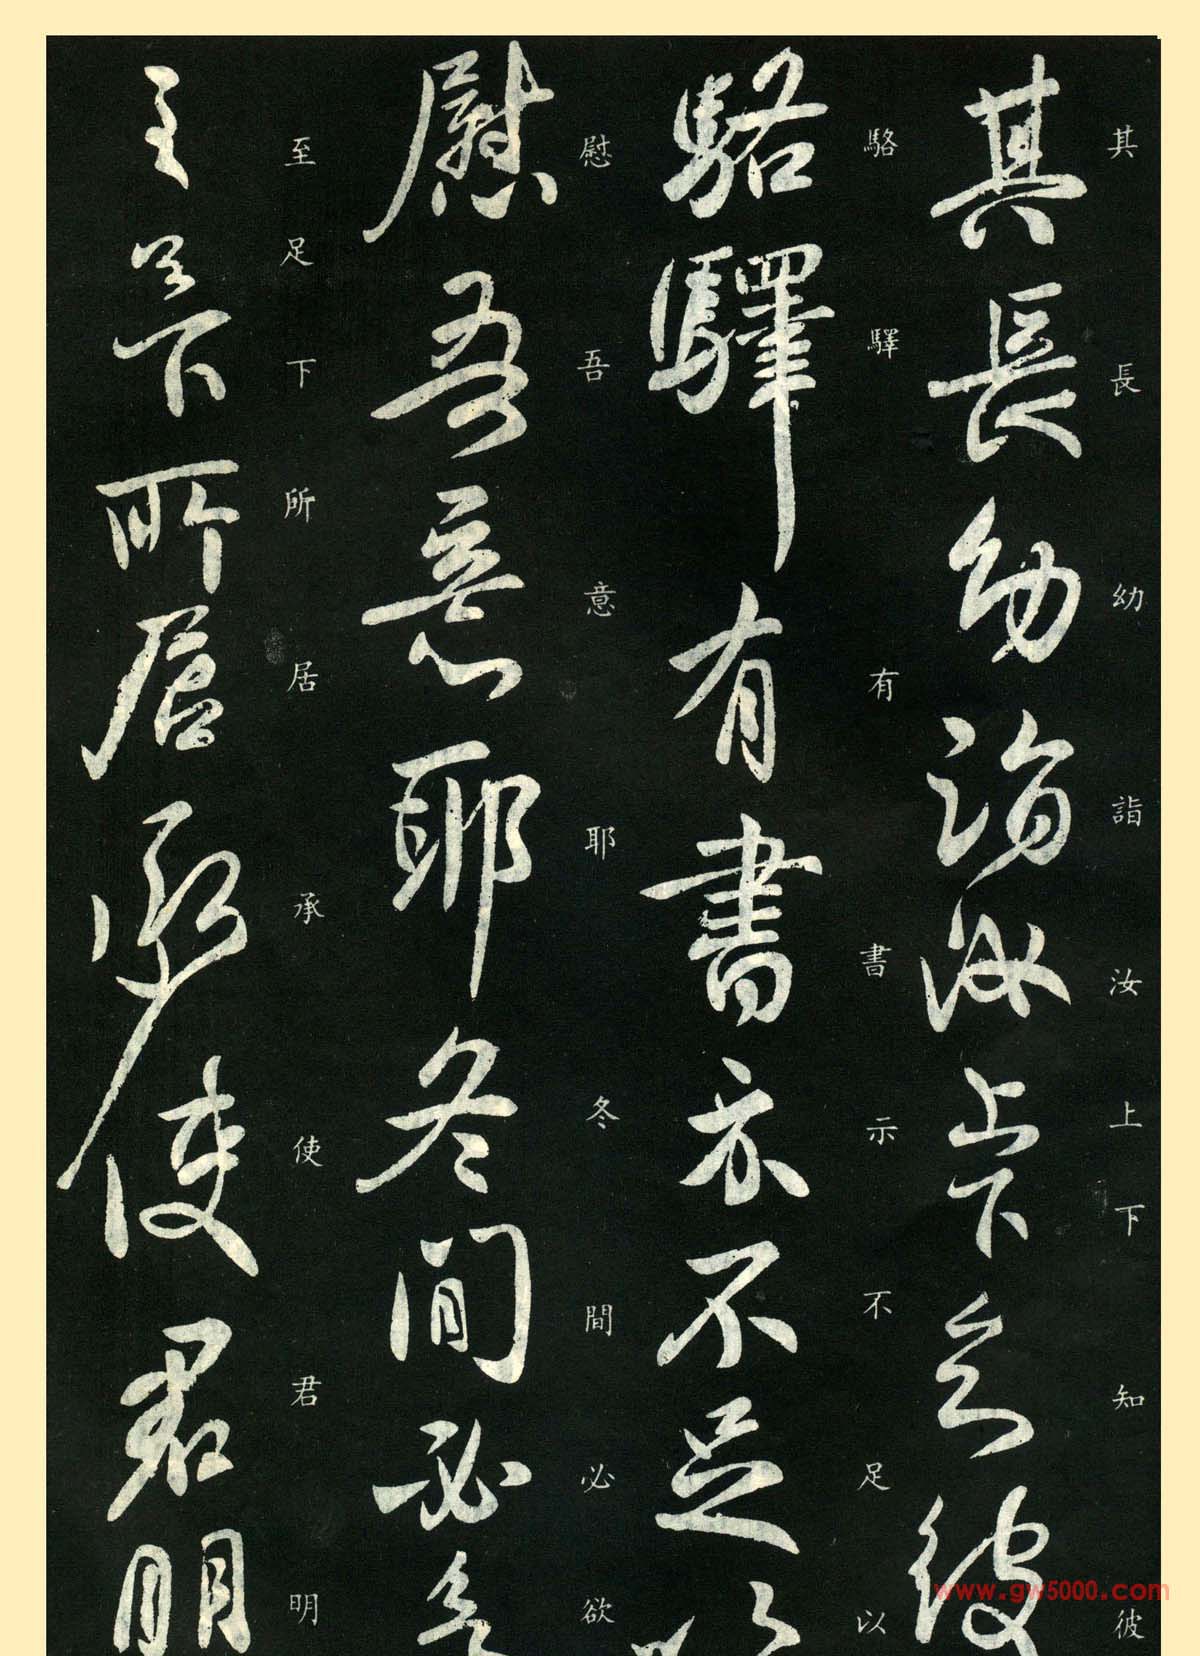 其長幼詣汝上下知彼
駱驛有書示不足以
慰吾意耶冬間必欲
至足下所居承使君明
www.gw5000.com